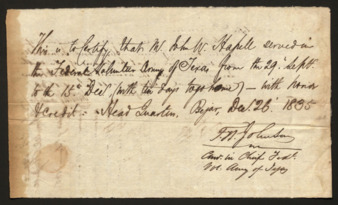 This is to Certify, that W. John W. Hassell served in
the Federal Volunteer Army of Texas from the 29th Septr
to the 15th Decr (with ten days to go home) — with honor
& credit — Head Quarters, Bejar, Decr 26. 1835
F W Johnson
Comr in Chief Fedl
Vol Army of Texas